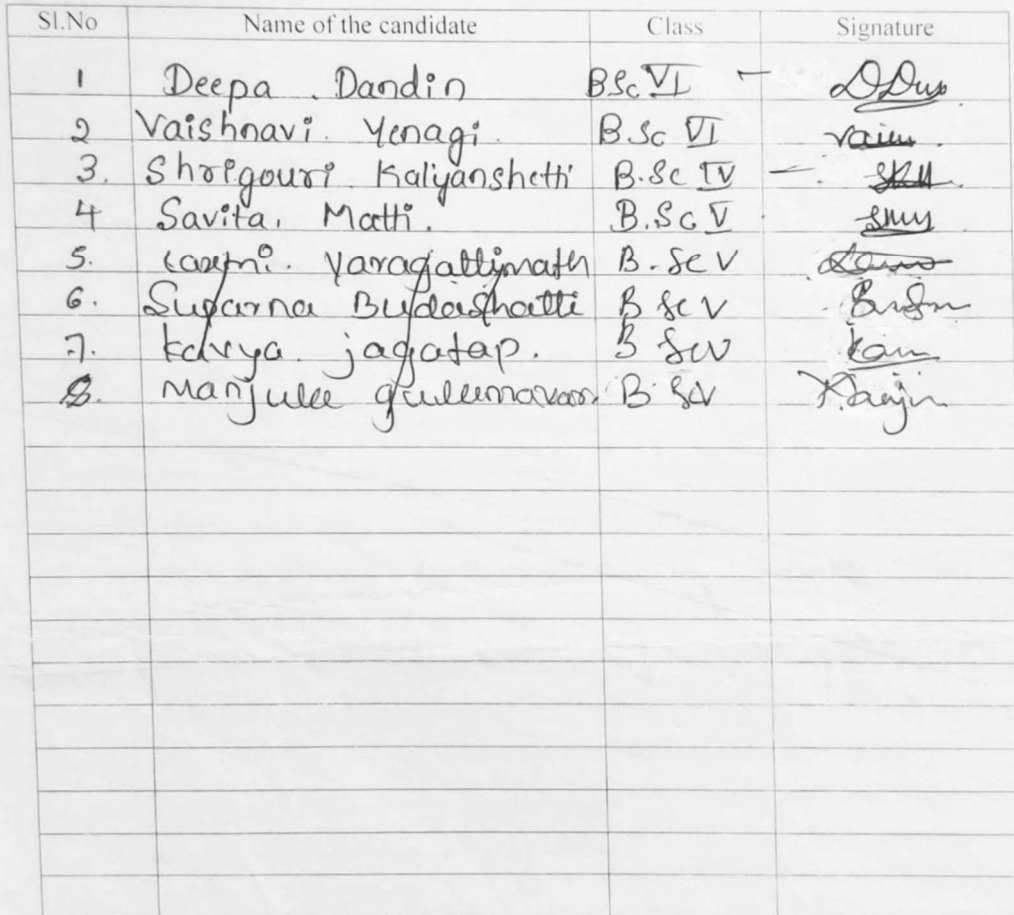 Sl.No Name of the candidate Class Signature
1 Deepa. Dandin BSc VI -
2 Vaishnavi. Yenagi. B.Sc VI
3. Shrigouri. Kaliyanshetti B.Sc IV -
4 Savita. Matti. B.Sc V
5. Laxmi. Yaragattimath B.Sc V
6. Suparna Budashatti B Sc V
7. Kavya. jagatap. B Sc V
8. Manjula B Sc V